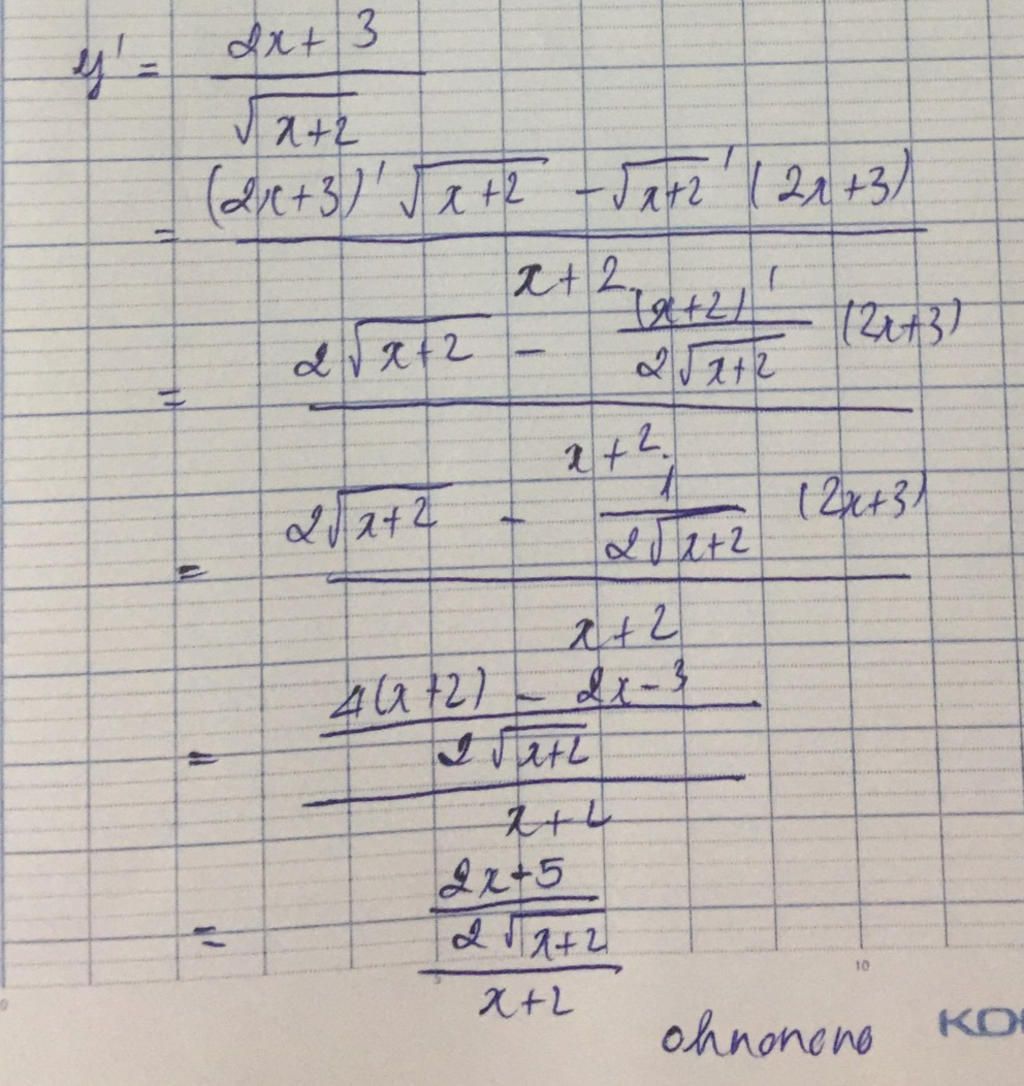 y' = (2x + 3) / √(x+2)
= ((2x+3)' √(x+2) - √(x+2)' (2x+3)) / (x+2)
= (2√(x+2) - (x+2)' / (2√(x+2)) (2x+3)) / (x+2)
= (2√(x+2) - 1 / (2√(x+2)) (2x+3)) / (x+2)
= ((4(x+2) - 2x-3) / (2√(x+2))) / (x+2)
= ((2x+5) / (2√(x+2))) / (x+2)
10
ohnonono